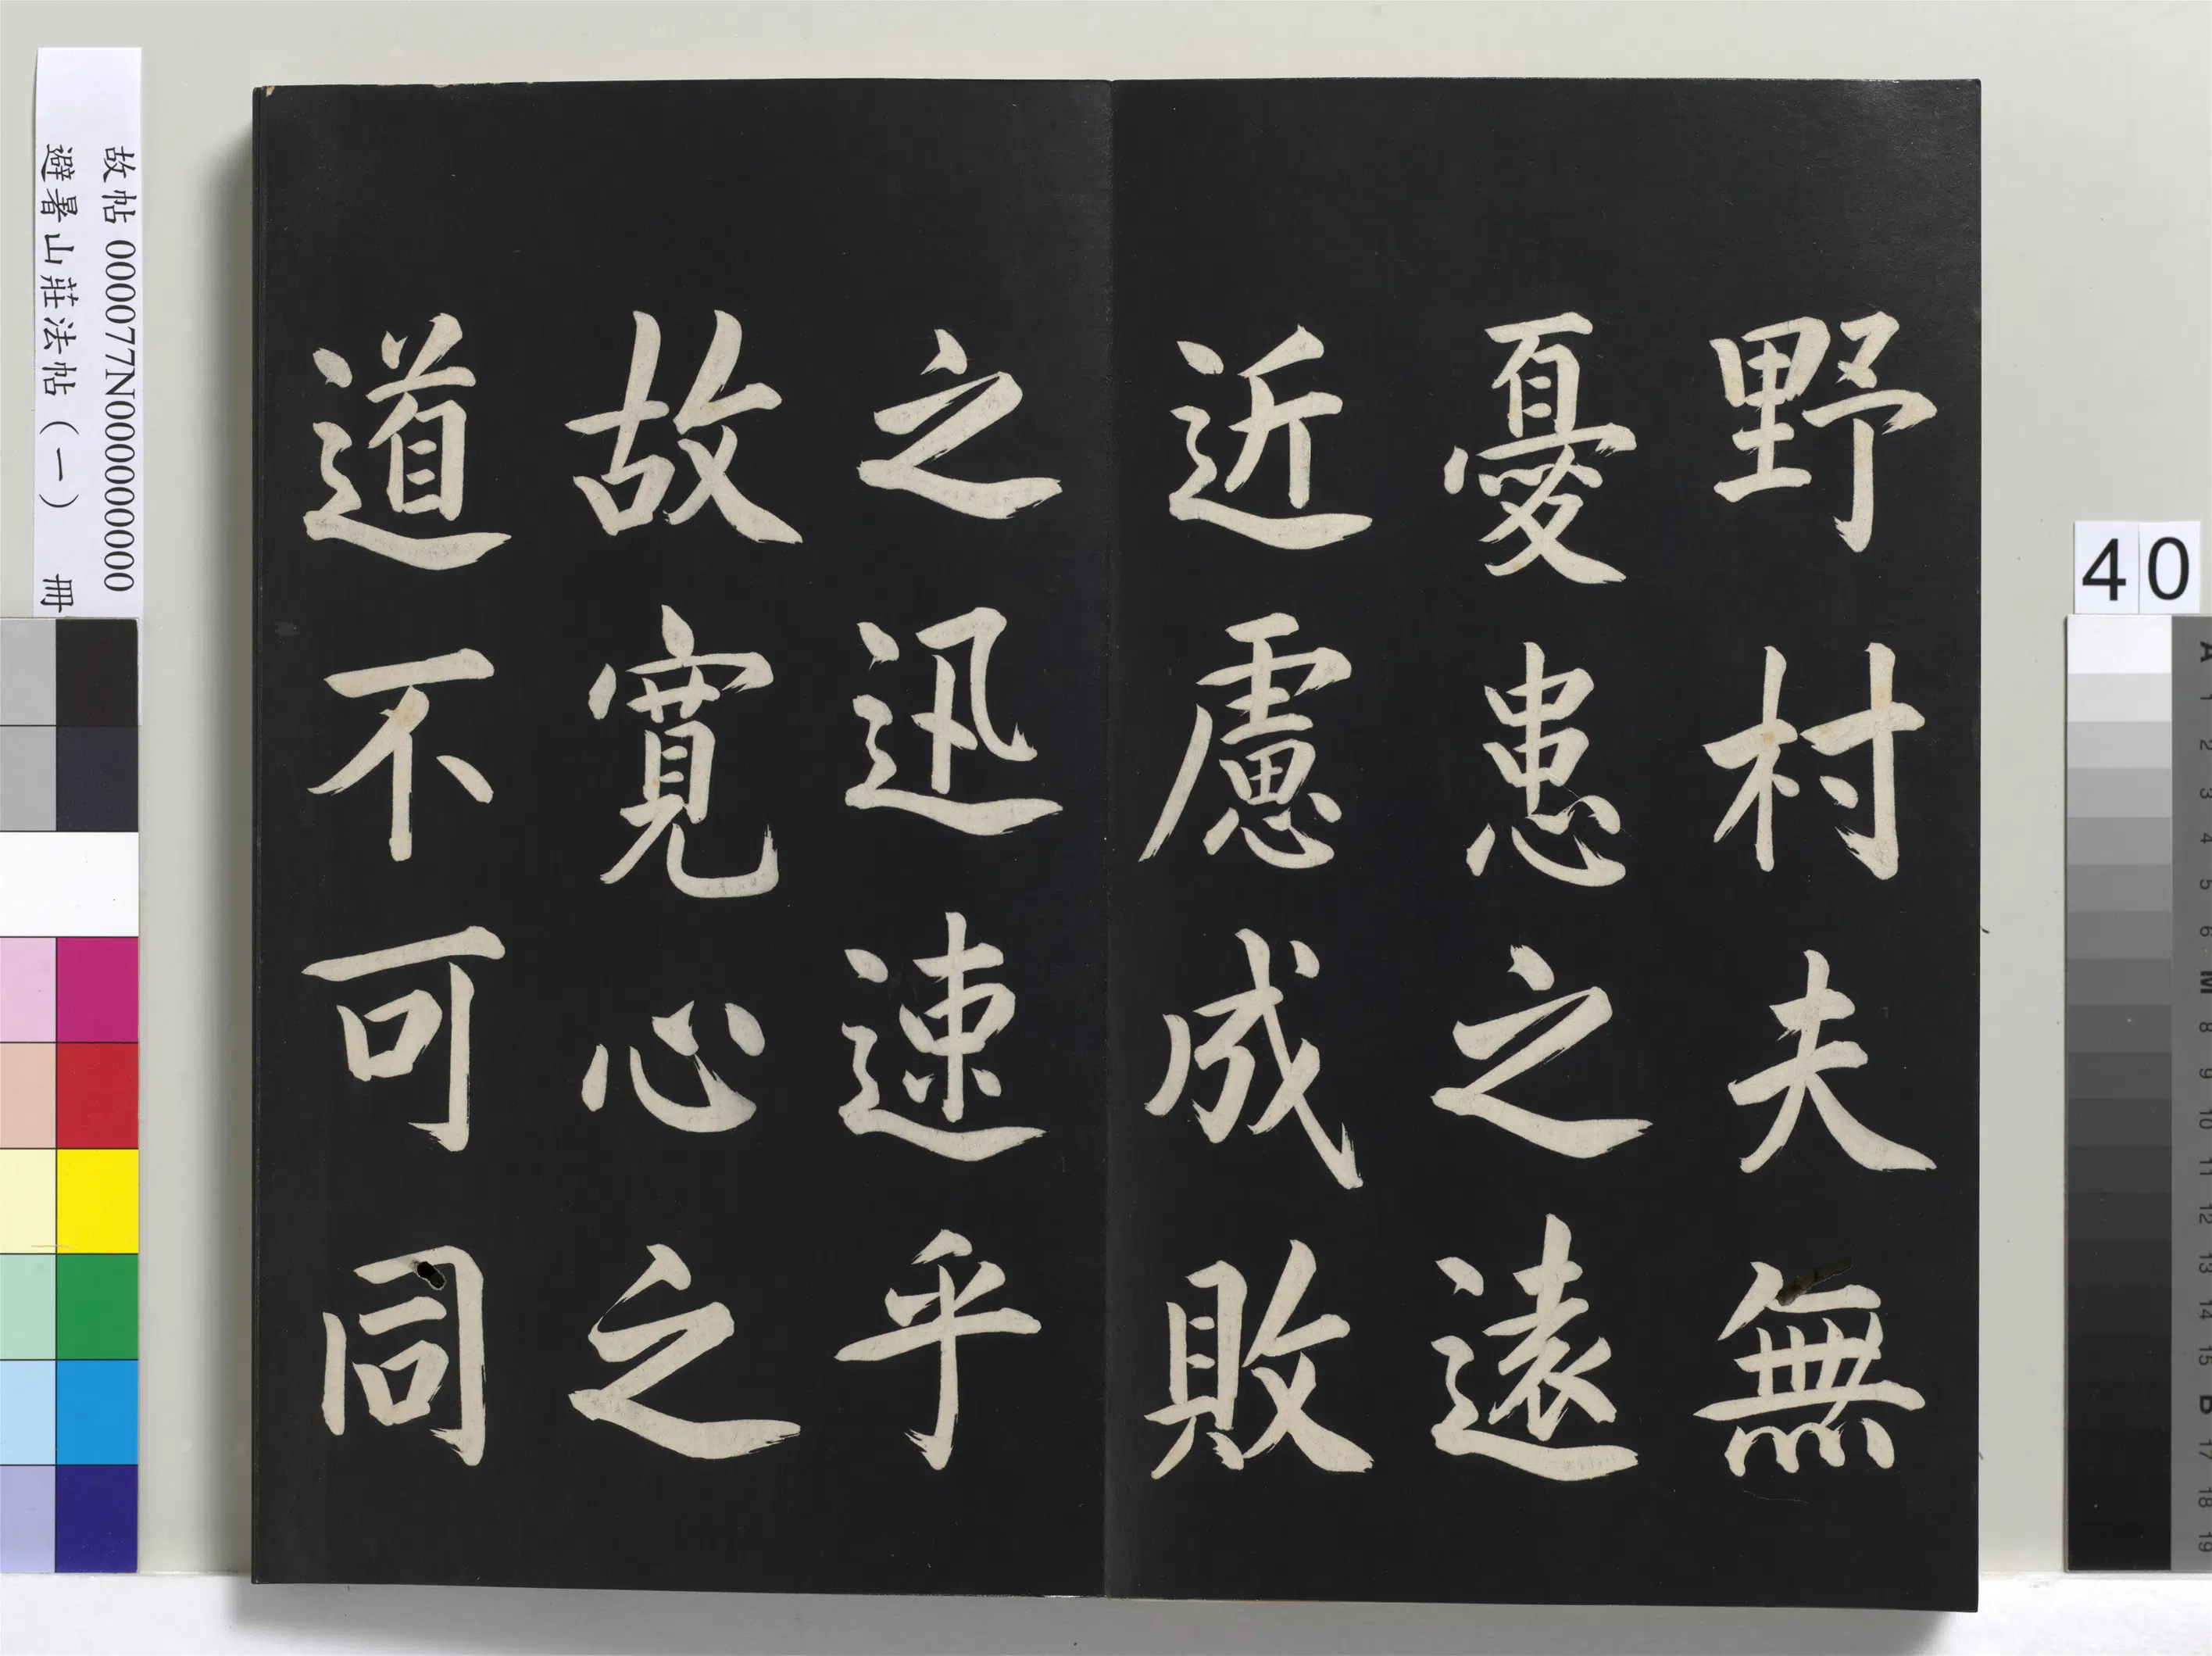 野村夫無
憂患之遠
近慮成敗
之迅速乎
故寬心之
道不可同
故帖 000077N000000000
避暑山莊法帖（一） 冊
40
A 1 2 3 4 5 6 M 8 9 10 11 12 13 14 15 B 17 18 19